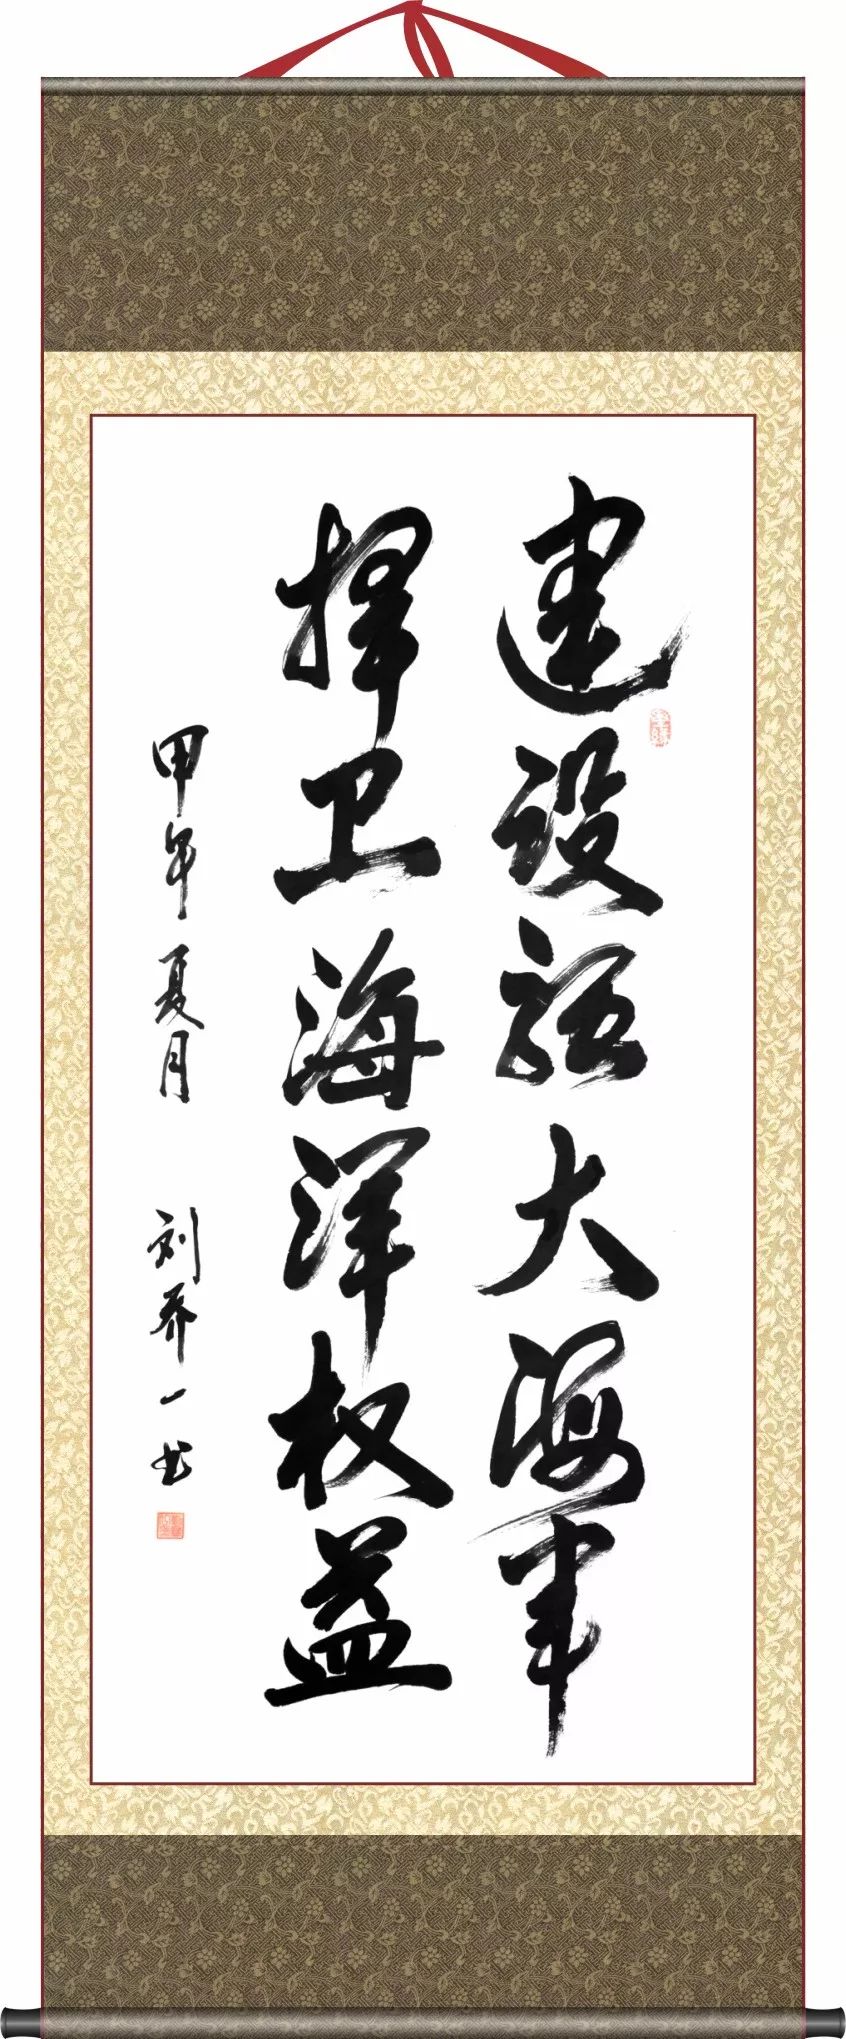 建设强大海军
捍卫海洋权益
甲午夏月 刘乔一书